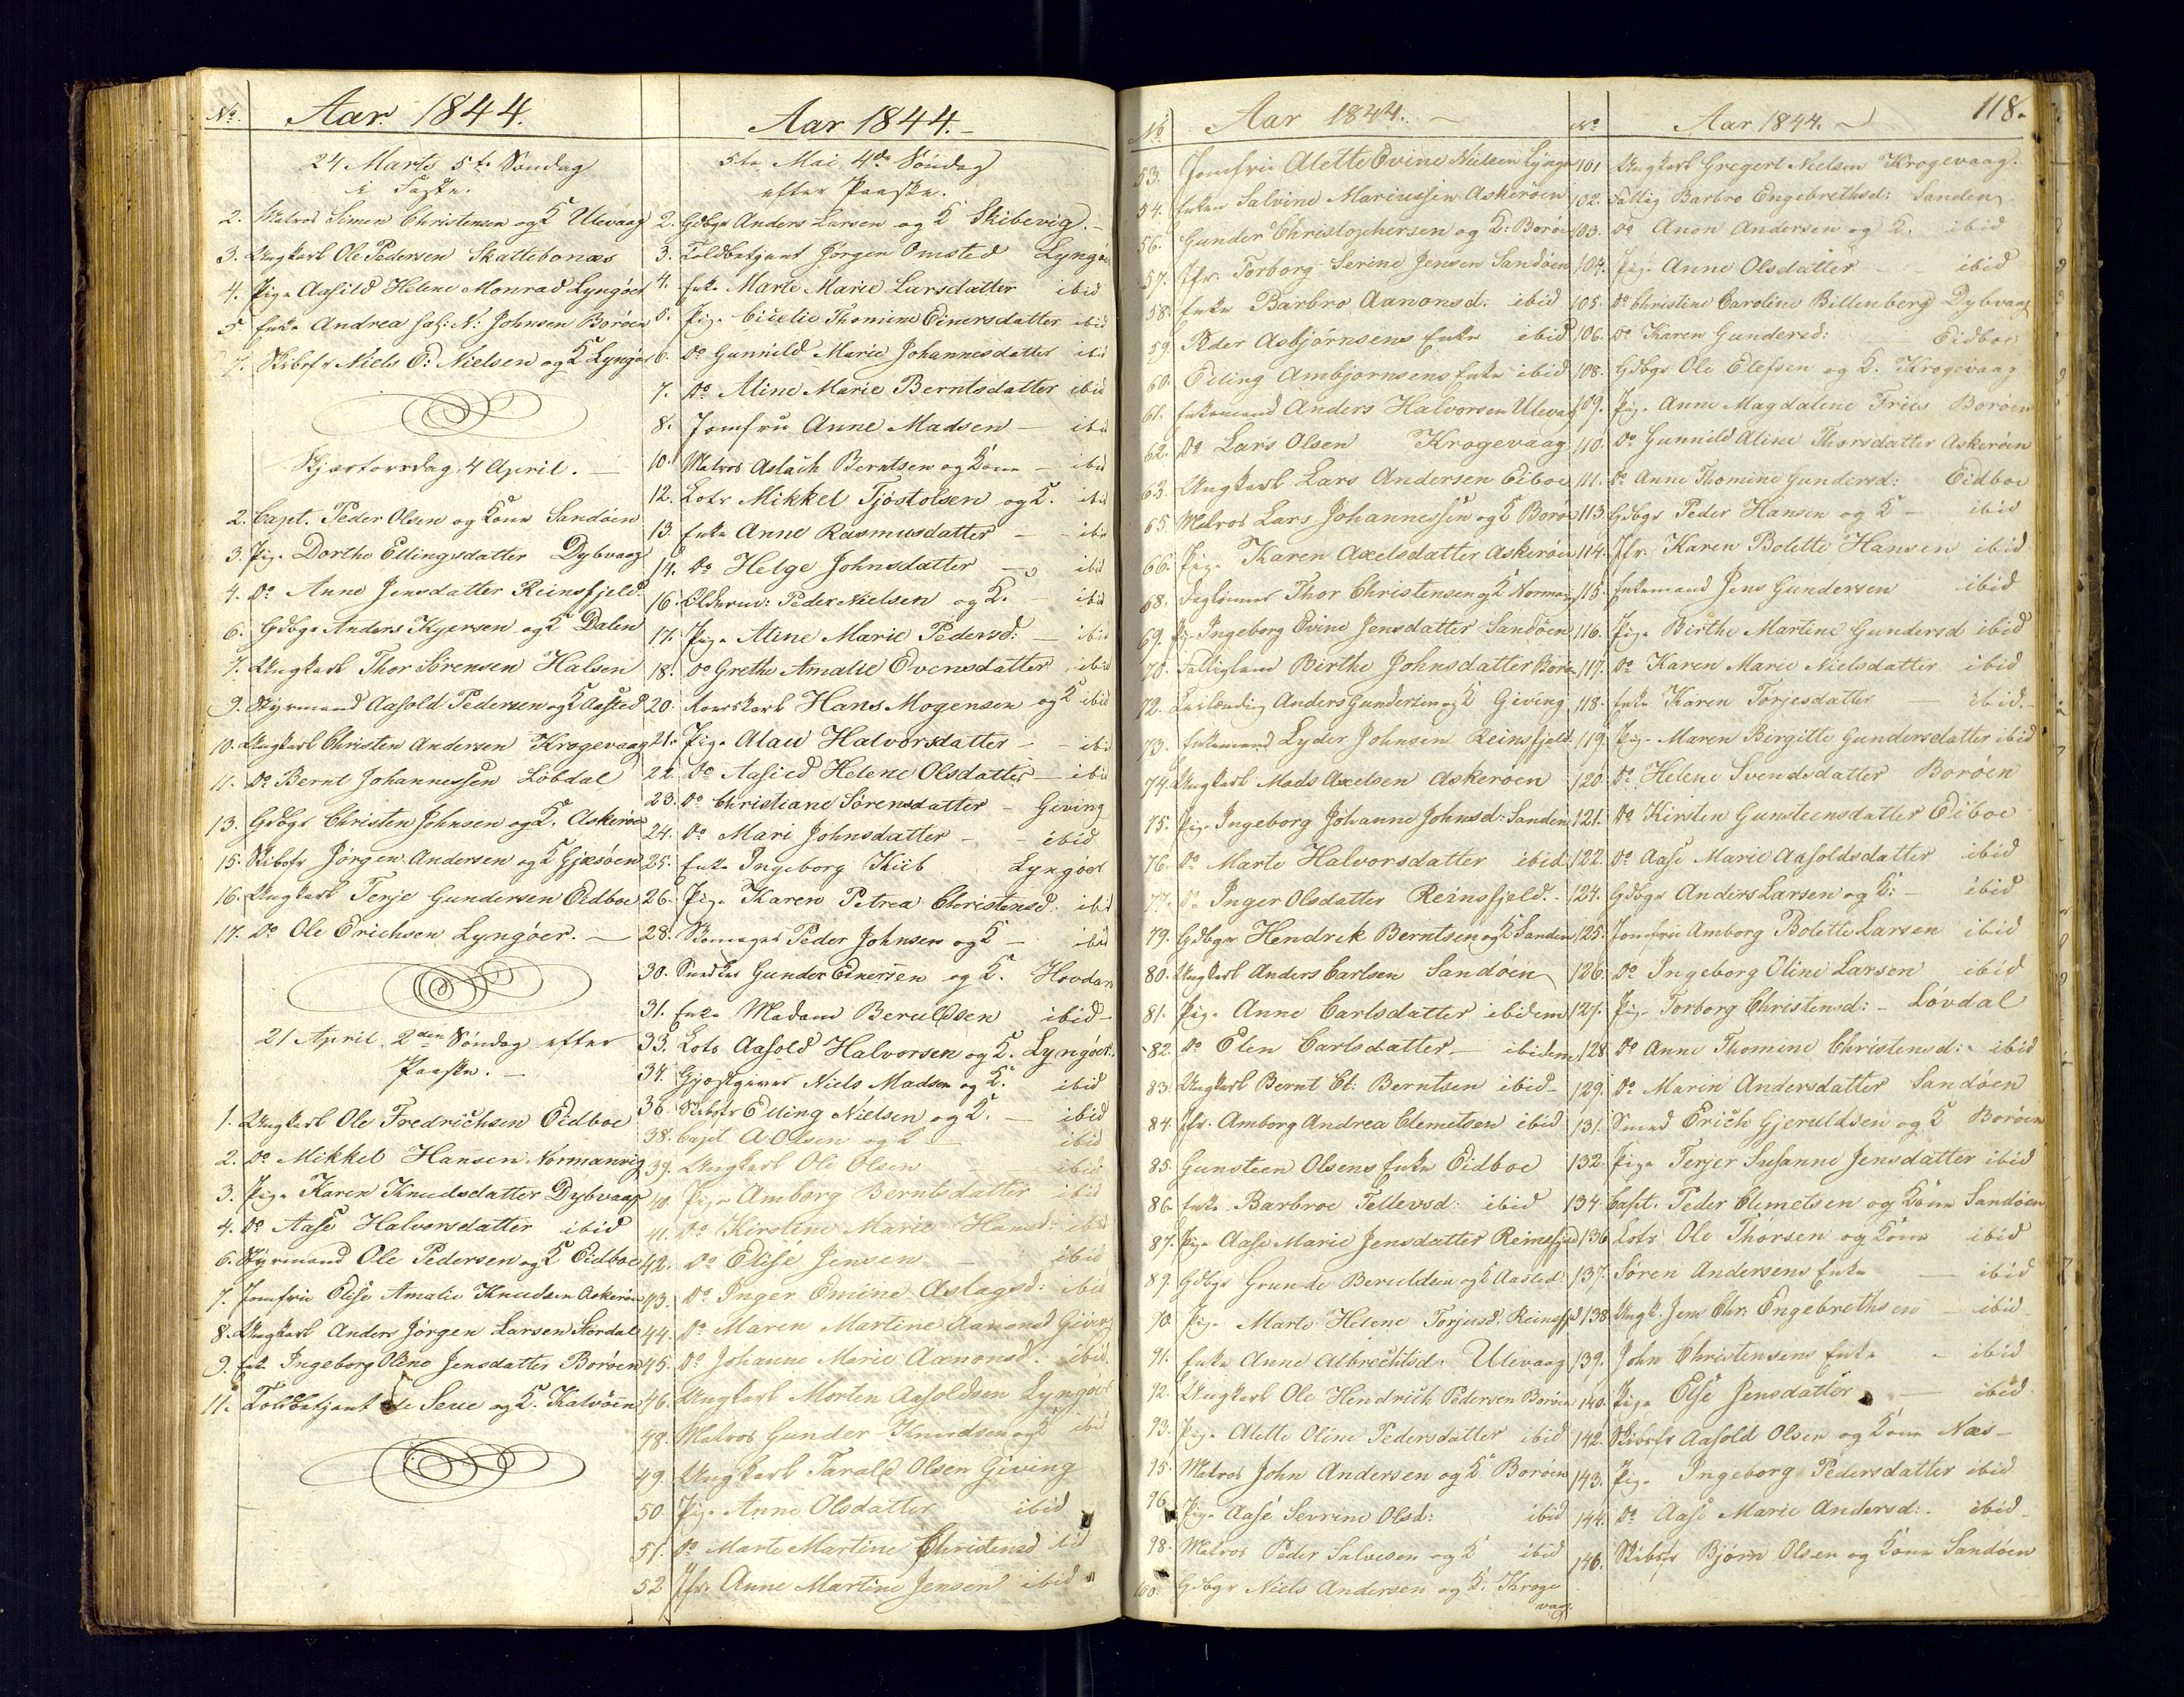 No. Aar 1844.
24 Marts 5te Søndag
i Faste.
2. Matros Simon Christensen og K Ulevaag
3. Ungkarl Ole Pedersen Skattebonæs
4. Pige Aasild Helene Monrad Lyngøer
5. Enke Andrea sal: N: Johnsen Borøen
7. Skibsfr Niels E: Nielsen og K Lyngøer
Skjærtorsdag 4 April.
2. Capt. Peder Olsen og Kone Sandøen
3. Pige Dorthe Ellingsdatter Dybvaag
4. Do Anne Jensdatter Reinsfjeld
6. Gdbgr Anders Kjersen og K Dalen
7. Ungkarl Thor Sørensen Halsen
9. Styrmand Aasold Pedersen og K Aasted
10. Ungkarl Christen Andersen Krogevaag
11. Do Bernt Johannessen Løbdal
13. Gdbgr Christen Johnsen og K. Askerøen
15. Skibsfr Jørgen Andersen og K Gjæsøen
16. Ungkarl Terje Gundersen Eidboe
17. Do Ole Erichsen Lyngöer.
21 April 2den Søndag efter
Paaske.
1. Ungkarl Ole Fredrichsen Eidboe
2. Do Mikkel Hansen Normanvig
3. Pige Karen Knudsdatter Dybvaag
4. Do Aase Halvorsdatter ibid
6. Styrmand Ole Pedersen og K Eidboe
7. Jomfru Elise Amalie Knudsen Askerøen
8. Ungkarl Anders Jørgen Larsen Stordal
9. Enke Ingeborg Oline Jensdatter Borøen
11. Toldbetjent de Seue og K. Kalvøen
Aar 1844.
5te Mai 4de Søndag
efter Paaske.
2. Gdbgr Anders Larsen og K Skibevig.
3. Toldbetjent Jørgen Omsted Lyngøer
4. Enke Marte Marie Larsdatter ibid
5. Pige Cicelie Thomine Einersdatter ibid
6. Do Gunnild Marie Johannesdatter ibid
7. Do Aline Marie Berntsdatter ibid
8. Jomfru Anne Madsen ibid
10. Matros Aslach Berntsen og Kone ibid
12. Lots Mikkel Tjøstolsen og K. ibid
13. Enke Anne Rasmusdatter ibid
14. Do Helge Johnsdatter ibid
16. Peder Nielsen og K. ibid
17. Pige Aline Marie Pedersd: ibid
18. Do Grethe Amalie Evensdatter ibid
20. Hans Mogensen og K ibid
21. Pige Alau Halvorsdatter ibid
22. Do Aasied Helene Olsdatter ibid
23. Do Christiane Sørensdatter Geving
24. Do Mari Johnsdatter ibid
25. Enke Ingeborg Kiib Lyngöer
26. Pige Karen Petrea Christensd. ibid
28. Skomager Peder Johnsen og K ibid
30. Snedker Gunder Einersen og K. Hovdan
31. Enke Madame Beruldsen ibid
33. Lots Aasold Halvorsen og K. Lyngøer
34. Gjæstgiver Niels Madsen og K. ibid
36. Skibsfr Elling Nielsen og K. ibid
38. Capt. A. Olsen og K ibid
39. Ungkarl Ole Olsen ibid
40. Pige Amborg Berntsdatter ibid
41. Do Kirstine Marie Hansd: ibid
42. Do Elise Jensen ibid
43. Do Inger Emine Aslagsd: ibid
44. Do Maren Martine Aanonsd Geving
45. Do Johanne Marie Aanonsd. ibid.
46. Ungkarl Morten Aasoldsen Lyngöer
48. Matros Gunder Knudsen og K ibid
49. Ungkarl Tarald Olsen Geving
50. Pige Anne Olsdatter ibid
51. Do Marte Martine Christensd ibid
52 Jfr. Anne Martine Jensen ibid
No Aar 1844.
53. Jomfru Alette Evine Nielsen Lyngøer
54. Enken Salvine Mariussen Askerøen
56. Gunder Christophersen og K: Borøen
57. Jfr. Torborg Serine Jensen Sandøen
58. Enke Barbro Aanonsd: ibid
59. Peder Asbjørnsens Enke ibid
60. Elling Ambjornsens Enke ibid
61. Enkemand Anders Halvorsen Ulevaag
62. Do Lars Olsen Krogevaag
63. Ungkarl Lars Andersen Eiboe
65. Matros Lars Johannessen og K Borøen
66. Pige Karen Axelsdatter Askerøen
68. Dagleiner Thor Christensen og K Normanvig
69. Pige Ingeborg Evine Jensdatter Sandøen
70. Fattiglem Birthe Johnsdatter Borøen
72. Anders Gundersen og K Geving
73. Enkemand Lyder Johnsen Reinsfjeld
74. Ungkarl Mads Axelsen Askerøen
75. Pige Ingeborg Johanne Johnsd: Sanden
76. Do Marte Halvorsdatter ibid
77. Do Inger Olsdatter Reinsfjeld.
79. Gdbgr Hendrik Berntsen og K Sanden
80. Ungkarl Anders Carlsen Sandøen
81. Pige Anne Carlsdatter ibidem
82. Do Elen Carlsdatter ibidem
83. Ungkarl Bernt Cl: Berntsen ibid
84. Jfr. Amborg Andrea Clemetsen ibid
85. Gunsteen Olsens Enke Eidboe
86. Enke Barbroe Tellevsd: ibid
87. Pige Aase Marie Jensdatter Reinsfjeld
89. Gdbgr Grunde Beruldsen og K Aasted
90. Pige Marte Helene Torjusd. Reinsfjd
91. Enke Anne Albrechtsd: Ulevaag
92. Ungkarl Ole Hendrich Pedersen Borøen
93. Pige Alette Oline Pedersdatter ibid
95. Matros John Andersen og K Borøen
96. Pige Aase Sevrine Olsd: ibid
98. Matros Peder Salvesen og K ibid
100. Gdbgr Niels Andersen og K: Kroge
vaag.
No Aar 1844. 118.
101 Ungkarl Gregert Nielsen Krogevaag.
102. Fattig Barbro Engebrethsd: Sanden
103. Do Anon Andersen og K. ibid
104. Pige Anne Olsdatter ibid
105. Do Christine Caroline Billenberg Dybvaag
106. Do Karen Gundersd: Eidboe
108. Gdbgr Ole Elefsen og K. Krogevaag
109. Pige Anne Magdalene Friis Borøen
110. Do Gunnild Aline Thorsdatter Askerøen
111. Do Anne Thomine Gundersd: Eidboe
113 Gdbgr Peder Hansen og K ibid
114. Jfr. Karen Bolette Hansen ibid
115. Enkemand Jens Gundersen ibid
116. Pige Birthe Martine Gundersd ibid
117. Do Karen Marie Nielsdatter ibid
118. Enke Karen Torjesdatter ibid.
119 Pige Maren Birgitte Gundersdatter ibid
120 Do Helene Svendsdatter Borøen
121. Do Kirsten Gunsteensdatter Eiboe
122. Do Aase Marie Aasoldsdatter ibid
124. Gdbgr Anders Larsen og K: ibid
125. Jomfru Amborg Bolette Larsen ibid
126. Do Ingeborg Oline Larsen ibid
127. Pige Torborg Christensd: Løvdal
128. Do Anne Thomine Christensd: ibid
129. Do Marin Andersdatter Sandøen
131. Smed Erich Gjeruldsen og K Borøen
132. Pige Terjer Susanne Jensdatter ibid
134. Capt. Peder Clemetsen og Kone Sandøen
136 Lots Ole Thorsen og Kone ibid
137. Søren Andersens Enke ibid
138 Ungk. Jens Chr. Engebrethsen ibid
139. John Christensens Enke ibid
140. Pige Else Jensdatter ibid
142. Skibsfr Aasold Olsen og Kone Næs
143. Pige Ingeborg Pedersdatter ibid
144. Do Aase Marie Andersd: ibid
146. Skibsfr Bjørn Olsen og Kone Sandøen